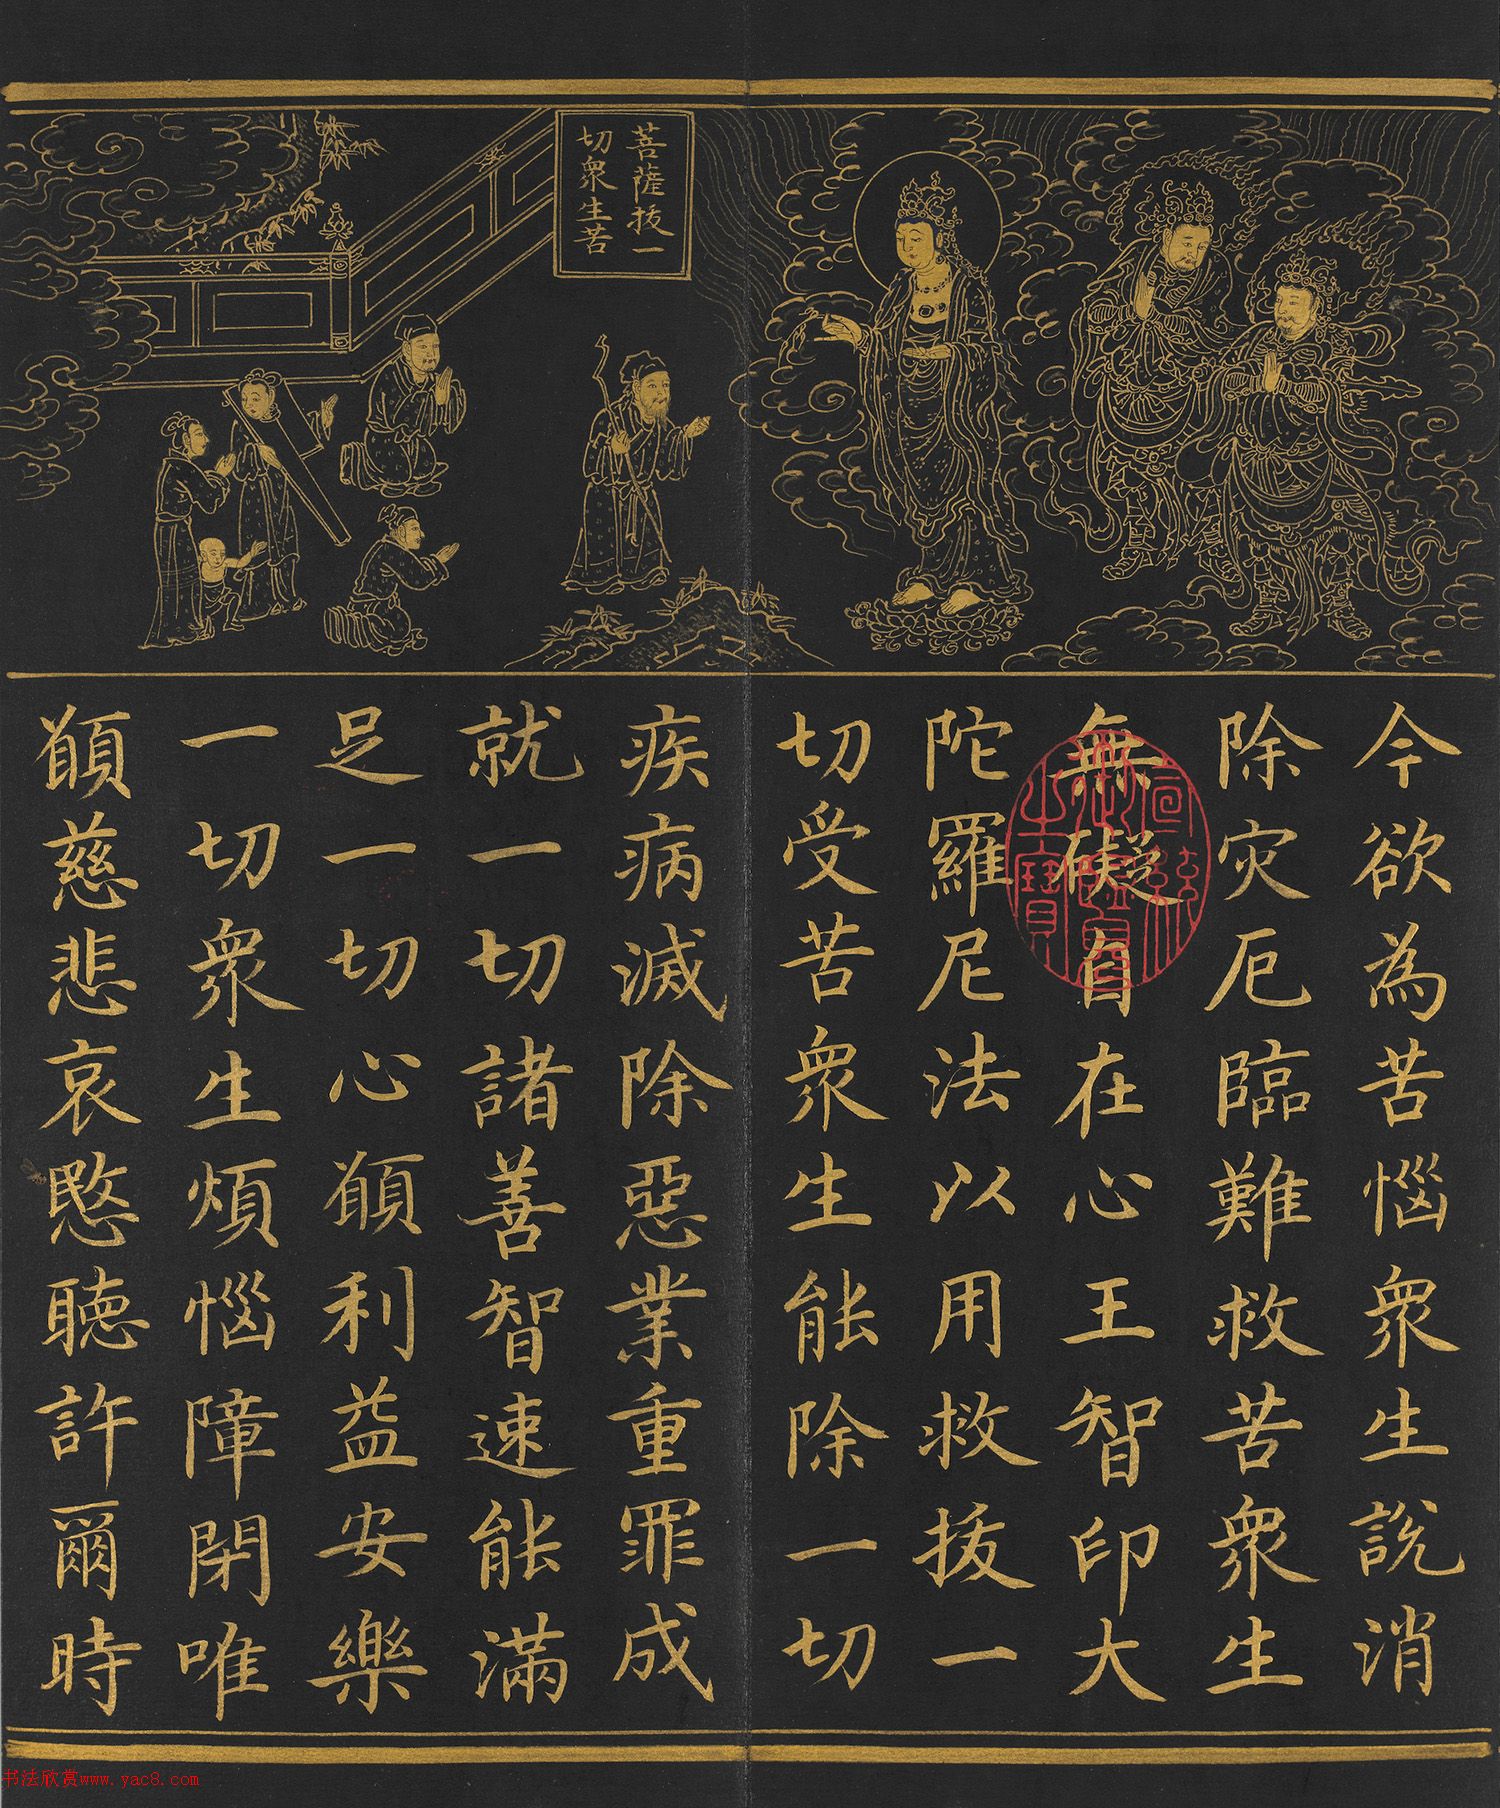 菩薩拔一
切衆生苦
今欲為苦惱衆生說消
除灾厄臨難救苦衆生
無礙自在心王智印大
陀羅尼法以用救拔一
切受苦衆生能除一切
疾病滅除惡業重罪成
就一切諸善智速能滿
足一切心願利益安樂
一切衆生煩惱障閉唯
願慈悲哀愍聽許爾時
宣統
御覽
之寶
书法欣赏www.yac8.com